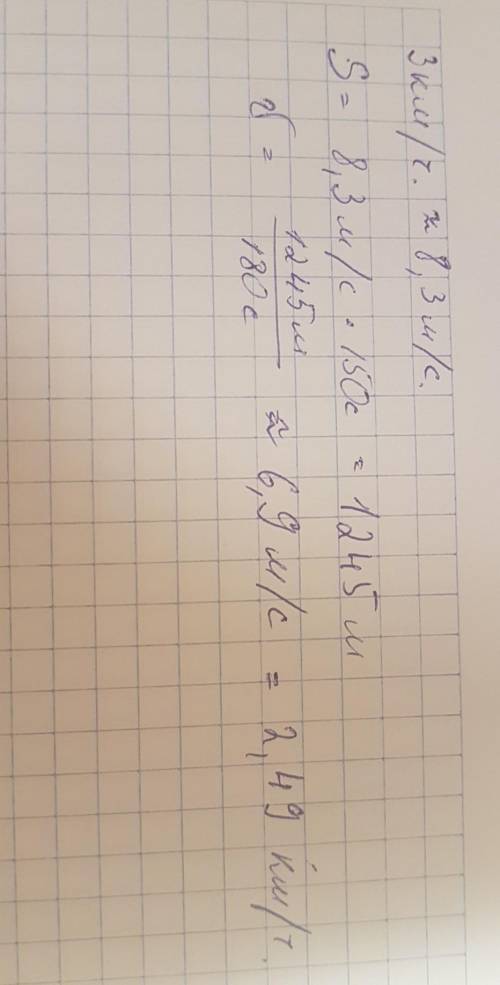 3км/ч. ≈ 8,3м/с.
S = 8,3м/с · 150с = 1245м
v = 1245м/180с ≈ 6,9 м/с = 2,49 км/ч.